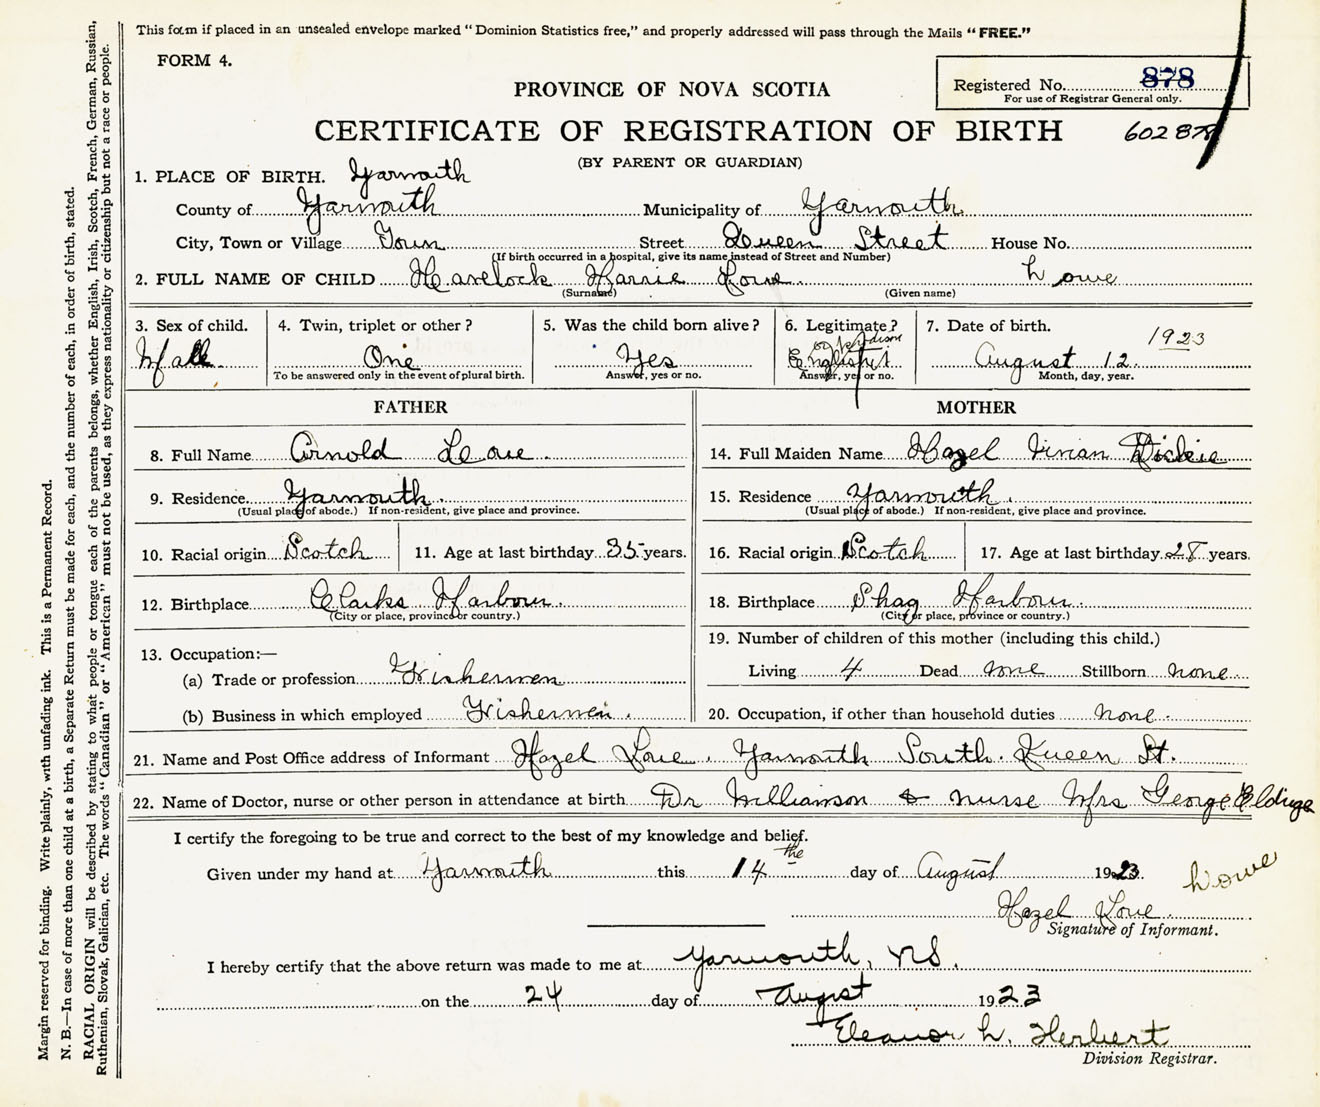 This form if placed in an unsealed envelope marked "Dominion Statistics free," and properly addressed will pass through the Mails "FREE."
FORM 4.
Registered No. 878
For use of Registrar General only.
PROVINCE OF NOVA SCOTIA
CERTIFICATE OF REGISTRATION OF BIRTH 602878
(BY PARENT OR GUARDIAN)
1. PLACE OF BIRTH. Yarmouth
County of Yarmouth Municipality of Yarmouth
City, Town or Village Town Street Queen Street House No.
(If birth occurred in a hospital, give its name instead of Street and Number)
2. FULL NAME OF CHILD Havelock Harrie Lowe Lowe
(Surname) (Given name)
3. Sex of child. 4. Twin, triplet or other? 5. Was the child born alive? 6. Legitimate? 7. Date of birth.
Male One Yes English August 12. 1923
To be answered only in the event of plural birth. Answer, yes or no. Answer, yes or no. Month, day, year.
FATHER MOTHER
8. Full Name Arnold Lowe. 14. Full Maiden Name Hazel Vivian Dickie
9. Residence Yarmouth. 15. Residence Yarmouth.
(Usual place of abode.) If non-resident, give place and province. (Usual place of abode.) If non-resident, give place and province.
10. Racial origin Scotch 11. Age at last birthday 35 years. 16. Racial origin Scotch 17. Age at last birthday 28 years.
12. Birthplace Clarks Harbour. 18. Birthplace Shag Harbour.
(City or place, province or country.) (City or place, province or country.)
19. Number of children of this mother (including this child.)
13. Occupation:—
(a) Trade or profession Fishermen Living 4 Dead none Stillborn none
(b) Business in which employed Fishermen. 20. Occupation, if other than household duties none.
21. Name and Post Office address of Informant Hazel Lowe. Yarmouth South. Queen St.
22. Name of Doctor, nurse or other person in attendance at birth Dr Williamson & nurse Mrs George Eldrige
I certify the foregoing to be true and correct to the best of my knowledge and belief.
Given under my hand at Yarmouth this 14 the day of August 1923 Lowe
Hazel Lowe.
Signature of Informant.
I hereby certify that the above return was made to me at Yarmouth, NS.
on the 24 day of August 1923
Eleanor L. Herbert
Division Registrar.
Margin reserved for binding. Write plainly, with unfading ink. This is a Permanent Record.
N. B.—In case of more than one child at a birth, a Separate Return must be made for each, and the number of each, in order of birth, stated.
RACIAL ORIGIN will be described by stating to what people or tongue each of the parents belongs, whether English, Irish, Scotch, French, German, Russian,
Ruthenian, Slovak, Galician, etc. The words "Canadian" or "American" must not be used, as they express nationality or citizenship but not a race or people.